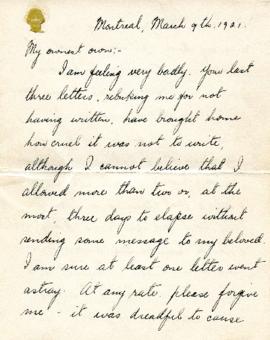 Montreal, March 9th. 1921.
My ownest own:-
I am feeling very badly. Your last
three letters, rebuking me for not
having written, have brought home
how cruel it was not to write,
although I cannot believe that I
allowed more than two or, at the
most, three days to elapse without
sending some message to my beloved.
I am sure at least one letter went
astray. At any rate, please forgive
me - it was dreadful to cause